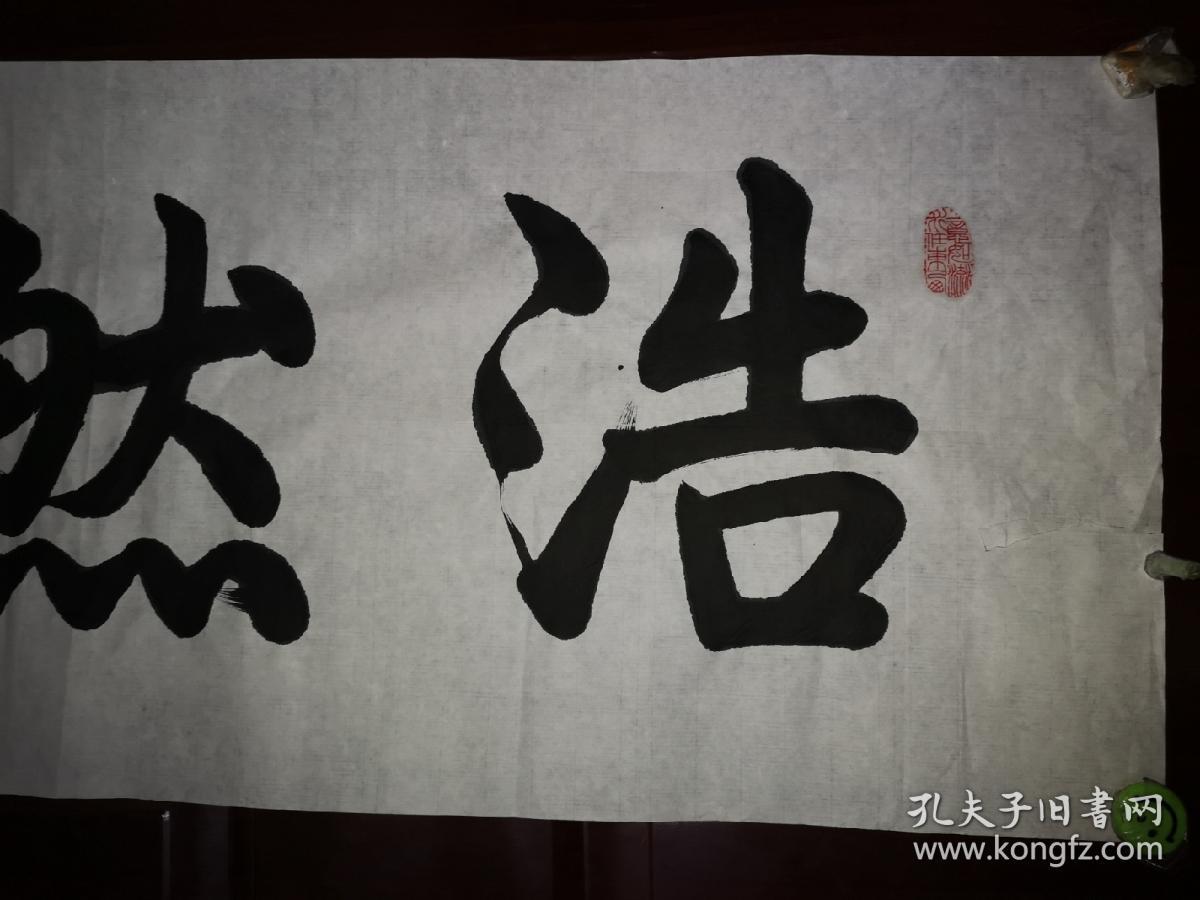 浩然
孔夫子旧書网
www.kongfz.com